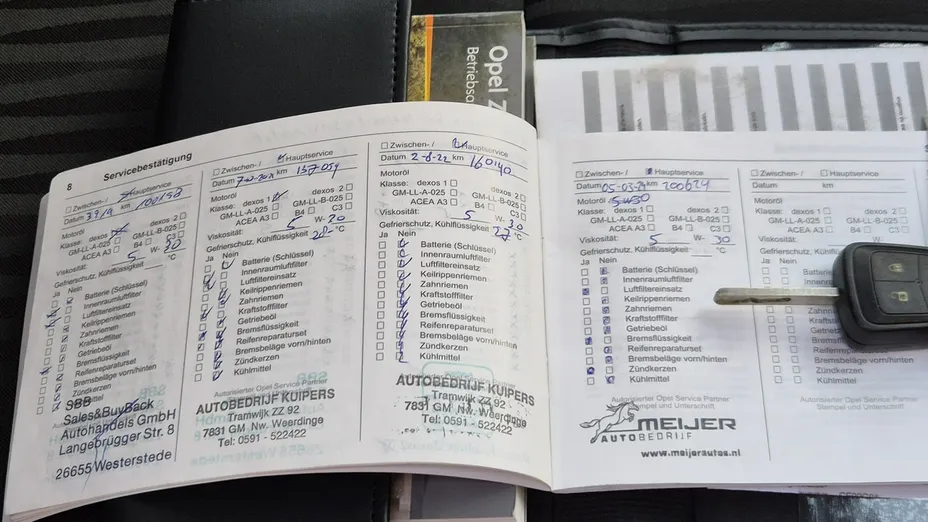 Opel Z
Betriebsa
8
Servicebestätigung
Zwischen- / Hauptservice
Datum km 100192
Motoröl
Klasse: dexos 1 dexos 2
GM-LL-A-025 GM-LL-B-025
ACEA A3 B4 C3
Viskosität: 5 W- 30
Gefrierschutz, Kühlflüssigkeit °C
Ja Nein
Batterie (Schlüssel)
Innenraumluftfilter
Luftfiltereinsatz
Keilrippenriemen
Zahnriemen
Kraftstofffilter
Getriebeöl
Bremsflüssigkeit
Reifenreparaturset
Bremsbeläge vorn/hinten
Zündkerzen
SBB
Sales&BuyBack
Autohandels GmbH
Langebrügger Str. 8
26655 Westerstede
Zwischen- / Hauptservice
Datum km 137059
Motoröl
Klasse: dexos 1 dexos 2
GM-LL-A-025 GM-LL-B-025
ACEA A3 B4 C3
Viskosität: 5 W- 30
Gefrierschutz, Kühlflüssigkeit °C
Ja Nein
Batterie (Schlüssel)
Innenraumluftfilter
Luftfiltereinsatz
Keilrippenriemen
Zahnriemen
Kraftstofffilter
Getriebeöl
Bremsflüssigkeit
Reifenreparaturset
Bremsbeläge vorn/hinten
Zündkerzen
Kühlmittel
Autorisierter Opel Service Partner
AUTOBEDRIJF KUIPERS
Tramwijk ZZ 92
7831 GM Nw. Weerdinge
Tel: 0591 - 522422
Zwischen- / Hauptservice
Datum 2-8-22 km 160140
Motoröl
Klasse: dexos 1 dexos 2
GM-LL-A-025 GM-LL-B-025
ACEA A3 B4 C3
Viskosität: 5 W- 30
Gefrierschutz, Kühlflüssigkeit °C
Ja Nein
Batterie (Schlüssel)
Innenraumluftfilter
Luftfiltereinsatz
Keilrippenriemen
Zahnriemen
Kraftstofffilter
Getriebeöl
Bremsflüssigkeit
Reifenreparaturset
Bremsbeläge vorn/hinten
Zündkerzen
Kühlmittel
Autorisierter Opel Service Partner
AUTOBEDRIJF KUIPERS
Tramwijk ZZ 92
7831 GM Nw. Weerdinge
Tel: 0591 - 522422
Zwischen- / Hauptservice
Datum 05-03-24 km 200624
Motoröl 5W30
Klasse: dexos 1 dexos 2
GM-LL-A-025 GM-LL-B-025
ACEA A3 B4 C3
Viskosität: 5 W- 30
Gefrierschutz, Kühlflüssigkeit °C
Ja Nein
Batterie (Schlüssel)
Innenraumluftfilter
Luftfiltereinsatz
Keilrippenriemen
Zahnriemen
Kraftstofffilter
Getriebeöl
Bremsflüssigkeit
Reifenreparaturset
Bremsbeläge vorn/hinten
Zündkerzen
Kühlmittel
Autorisierter Opel Service Partner
Stempel und Unterschrift
MEIJER
AUTOBEDRIJF
www.meijerautos.nl
Zwischen- / Hauptservice
Datum km
Motoröl
Klasse: dexos 1 dexos 2
GM-LL-A-025 GM-LL-B-025
ACEA A3 B4 C3
Viskosität: W-
Gefrierschutz, Kühlflüssigkeit
Ja Nein
Batterie (Schlüssel)
Kraftstofffilter
Getriebeöl
Bremsflüssigkeit
Reifenreparaturset
Bremsbeläge vorn/hinten
Zündkerzen
Kühlmittel
Autorisierter Opel Service Partner
Stempel und Unterschrift